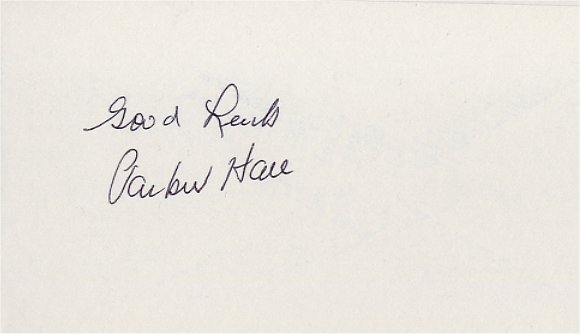 Good Luck
Parker Hall